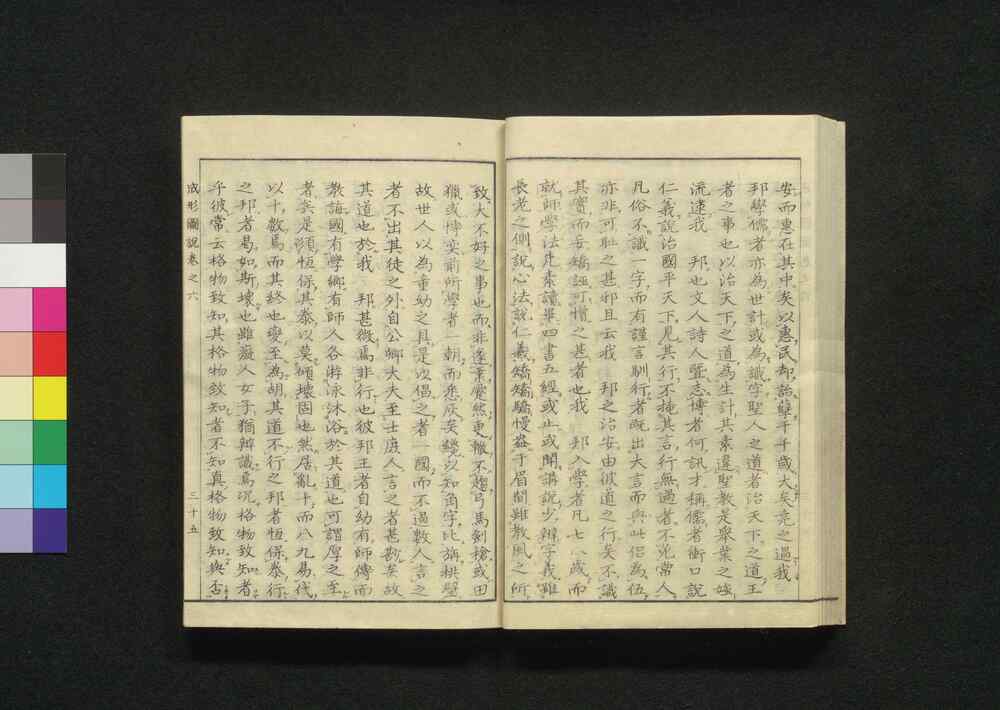 安而惠在其中矣以惠民却詒孽千千歲大矣堯之過我
邦學儒者亦為世計或為識字聖人之道者治天下之道王
者之事也以治天下之道為生計其素違聖教是衆葉之
流遠我 邦也文人詩人聾志博者何訊才稱儒者衝口說
仁義說治國平天下見其行不掩其言行無過者不免常人
凡俗不識一字而有謹言馴行者既出大言而與此侶為伍
亦非可耻之甚邪且云我 邦之治安由彼道之行矣不識
其實而妄矯誣可憎之甚者也我 邦入學者凡七八歲而
就師學法先素讀畢四書五經或止或聞講說少辨字義雖
長老之側說心法說仁義矯矯驕慢盎于眉間雖教風之所
致大不好之事也而非遂業蹙然更轍不趣弓馬劍槍或田
獵或博奕前所學者一朝而悉灰矣纔以知角字比旃栱壁
故世人以為童幼之具是以倡之者一國而不過數人言之
者不出其徒之外自公卿大夫至士庶人言之者甚尠矣故
其道也於我 邦甚微焉非行也彼邦王者自幼有師傅而
教誨國有學鄉有師人各游泳沐浴於其道也可謂厚之至
者矣是頃恒保其泰以莫傾壞固也然居亂十而八九易代
以十數焉而其終也變至為胡其道不行之邦者恒保泰行
之邦者曷如斯壞也雖癡人女子猶辨識焉况格物致知者
乎彼常云格物致知其格物致知者不知真格物致知與否
成形圖說卷之六
三十五